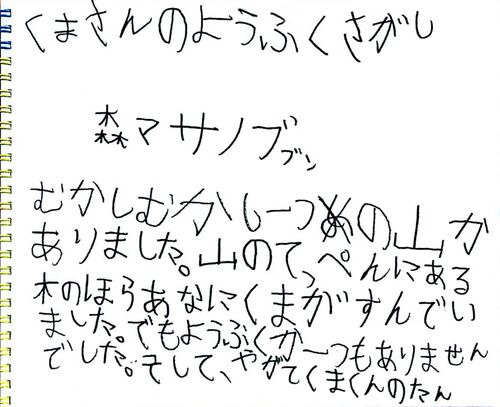 くまさんのようふくさがし
森マサノブ ブン
むかしむかし一つの山が
ありました。山のてっぺんにある
木のほらあなにくまがすんでい
ました。でもようふくが一つもありません
でした。そして、やがてくまくんのたん